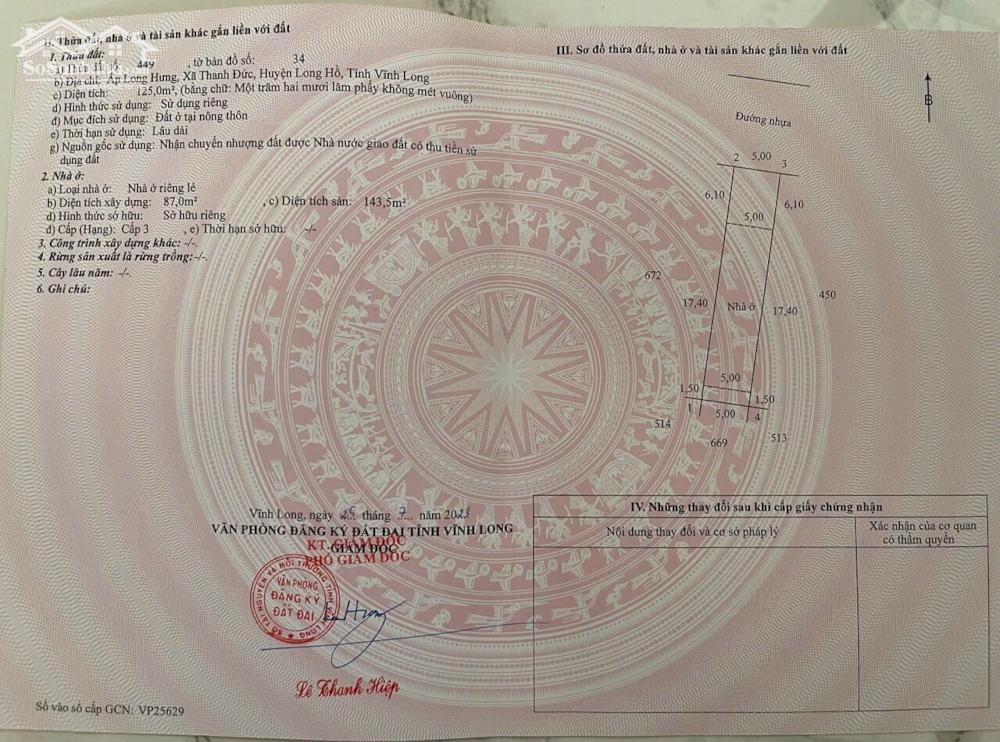 II. Thửa đất, nhà ở và tài sản khác gắn liền với đất
1. Thửa đất:
số: 449 , tờ bản đồ số: 34
b) Địa chỉ: Ấp Long Hưng, Xã Thanh Đức, Huyện Long Hồ, Tỉnh Vĩnh Long
c) Diện tích: 125,0m², (bằng chữ: Một trăm hai mươi lăm phẩy không mét vuông)
d) Hình thức sử dụng: Sử dụng riêng
đ) Mục đích sử dụng: Đất ở tại nông thôn
e) Thời hạn sử dụng: Lâu dài
g) Nguồn gốc sử dụng: Nhận chuyển nhượng đất được Nhà nước giao đất có thu tiền sử
dụng đất
2. Nhà ở:
a) Loại nhà ở: Nhà ở riêng lẻ
b) Diện tích xây dựng: 87,0m² , c) Diện tích sàn: 143,5m²
d) Hình thức sở hữu: Sở hữu riêng
đ) Cấp (Hạng): Cấp 3 , e) Thời hạn sở hữu: -/-
3. Công trình xây dựng khác: -/-.
4. Rừng sản xuất là rừng trồng:-/-.
5. Cây lâu năm: -/-.
6. Ghi chú:
Vĩnh Long, ngày 25 tháng 7 năm 2023
VĂN PHÒNG ĐĂNG KÝ ĐẤT ĐAI TỈNH VĨNH LONG
KT. GIÁM ĐỐC
GIÁM ĐỐC
PHÓ GIÁM ĐỐC
SỞ TÀI NGUYÊN VÀ MÔI TRƯỜNG TỈNH VĨNH LONG
VĂN PHÒNG
ĐĂNG KÝ
ĐẤT ĐAI
Lê Thanh Hiệp
Số vào sổ cấp GCN: VP25629
III. Sơ đồ thửa đất, nhà ở và tài sản khác gắn liền với đất
B
Đường nhựa
2 5,00 3
6,10 6,10
5,00
672
450
17,40 Nhà ở 17,40
5,00
1,50 1,50
1 5,00 4
514
669 513
IV. Những thay đổi sau khi cấp giấy chứng nhận
Nội dung thay đổi và cơ sở pháp lý
Xác nhận của cơ quan
có thẩm quyền